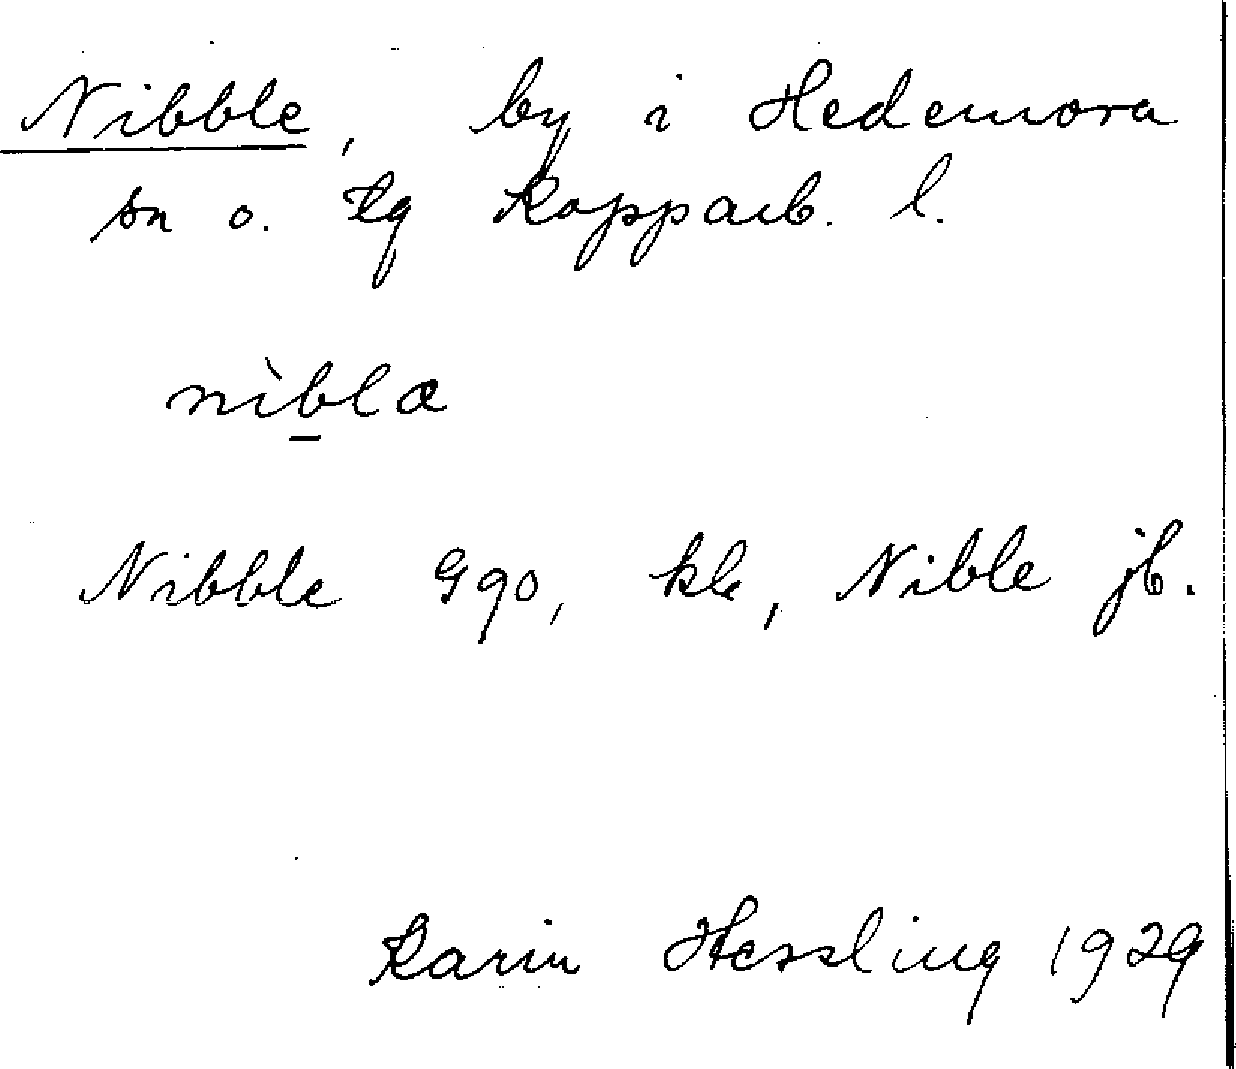 Nibble, by i Hedemora
sn o. tg Kopparb. l.
nìb̲la
Nibble Gqo, kk, Nible jb.
Karin Hessling 1929